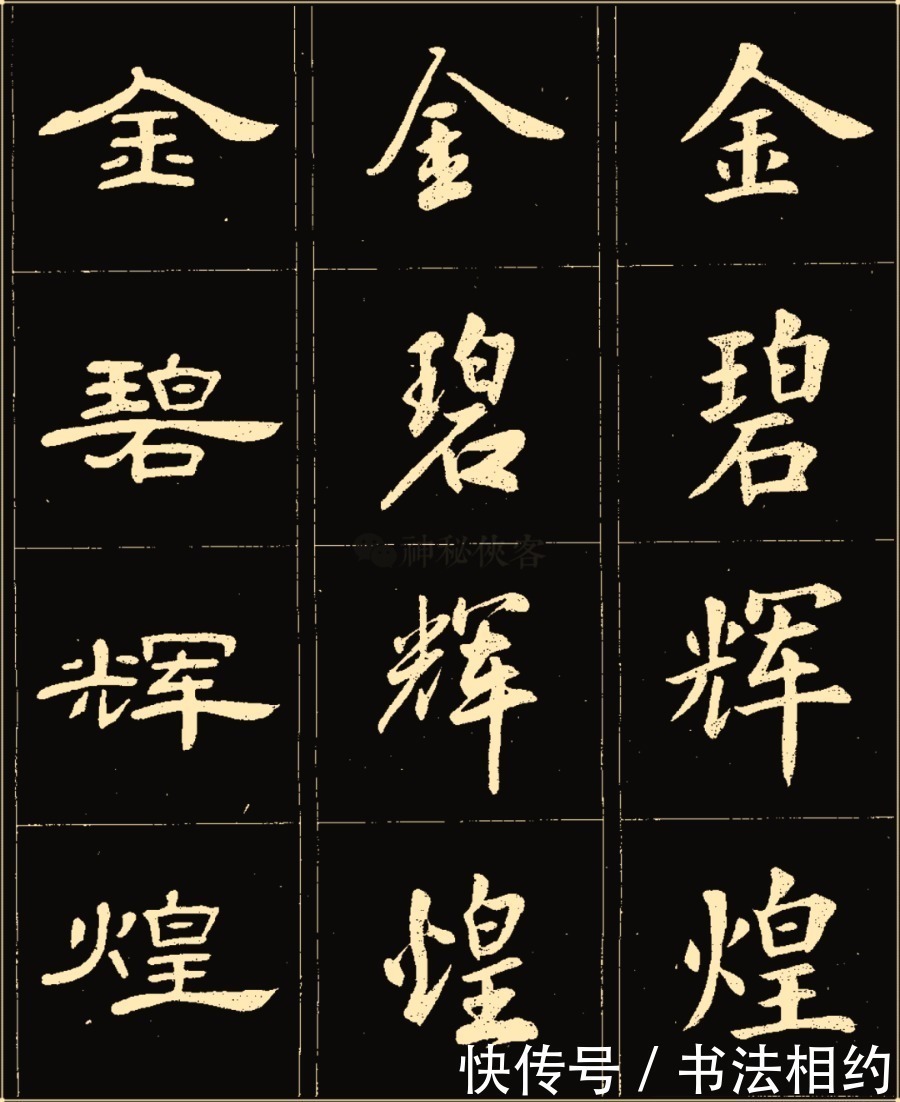 金碧辉煌
金碧辉煌
金碧辉煌
神秘俠客
快传号 / 书法相约